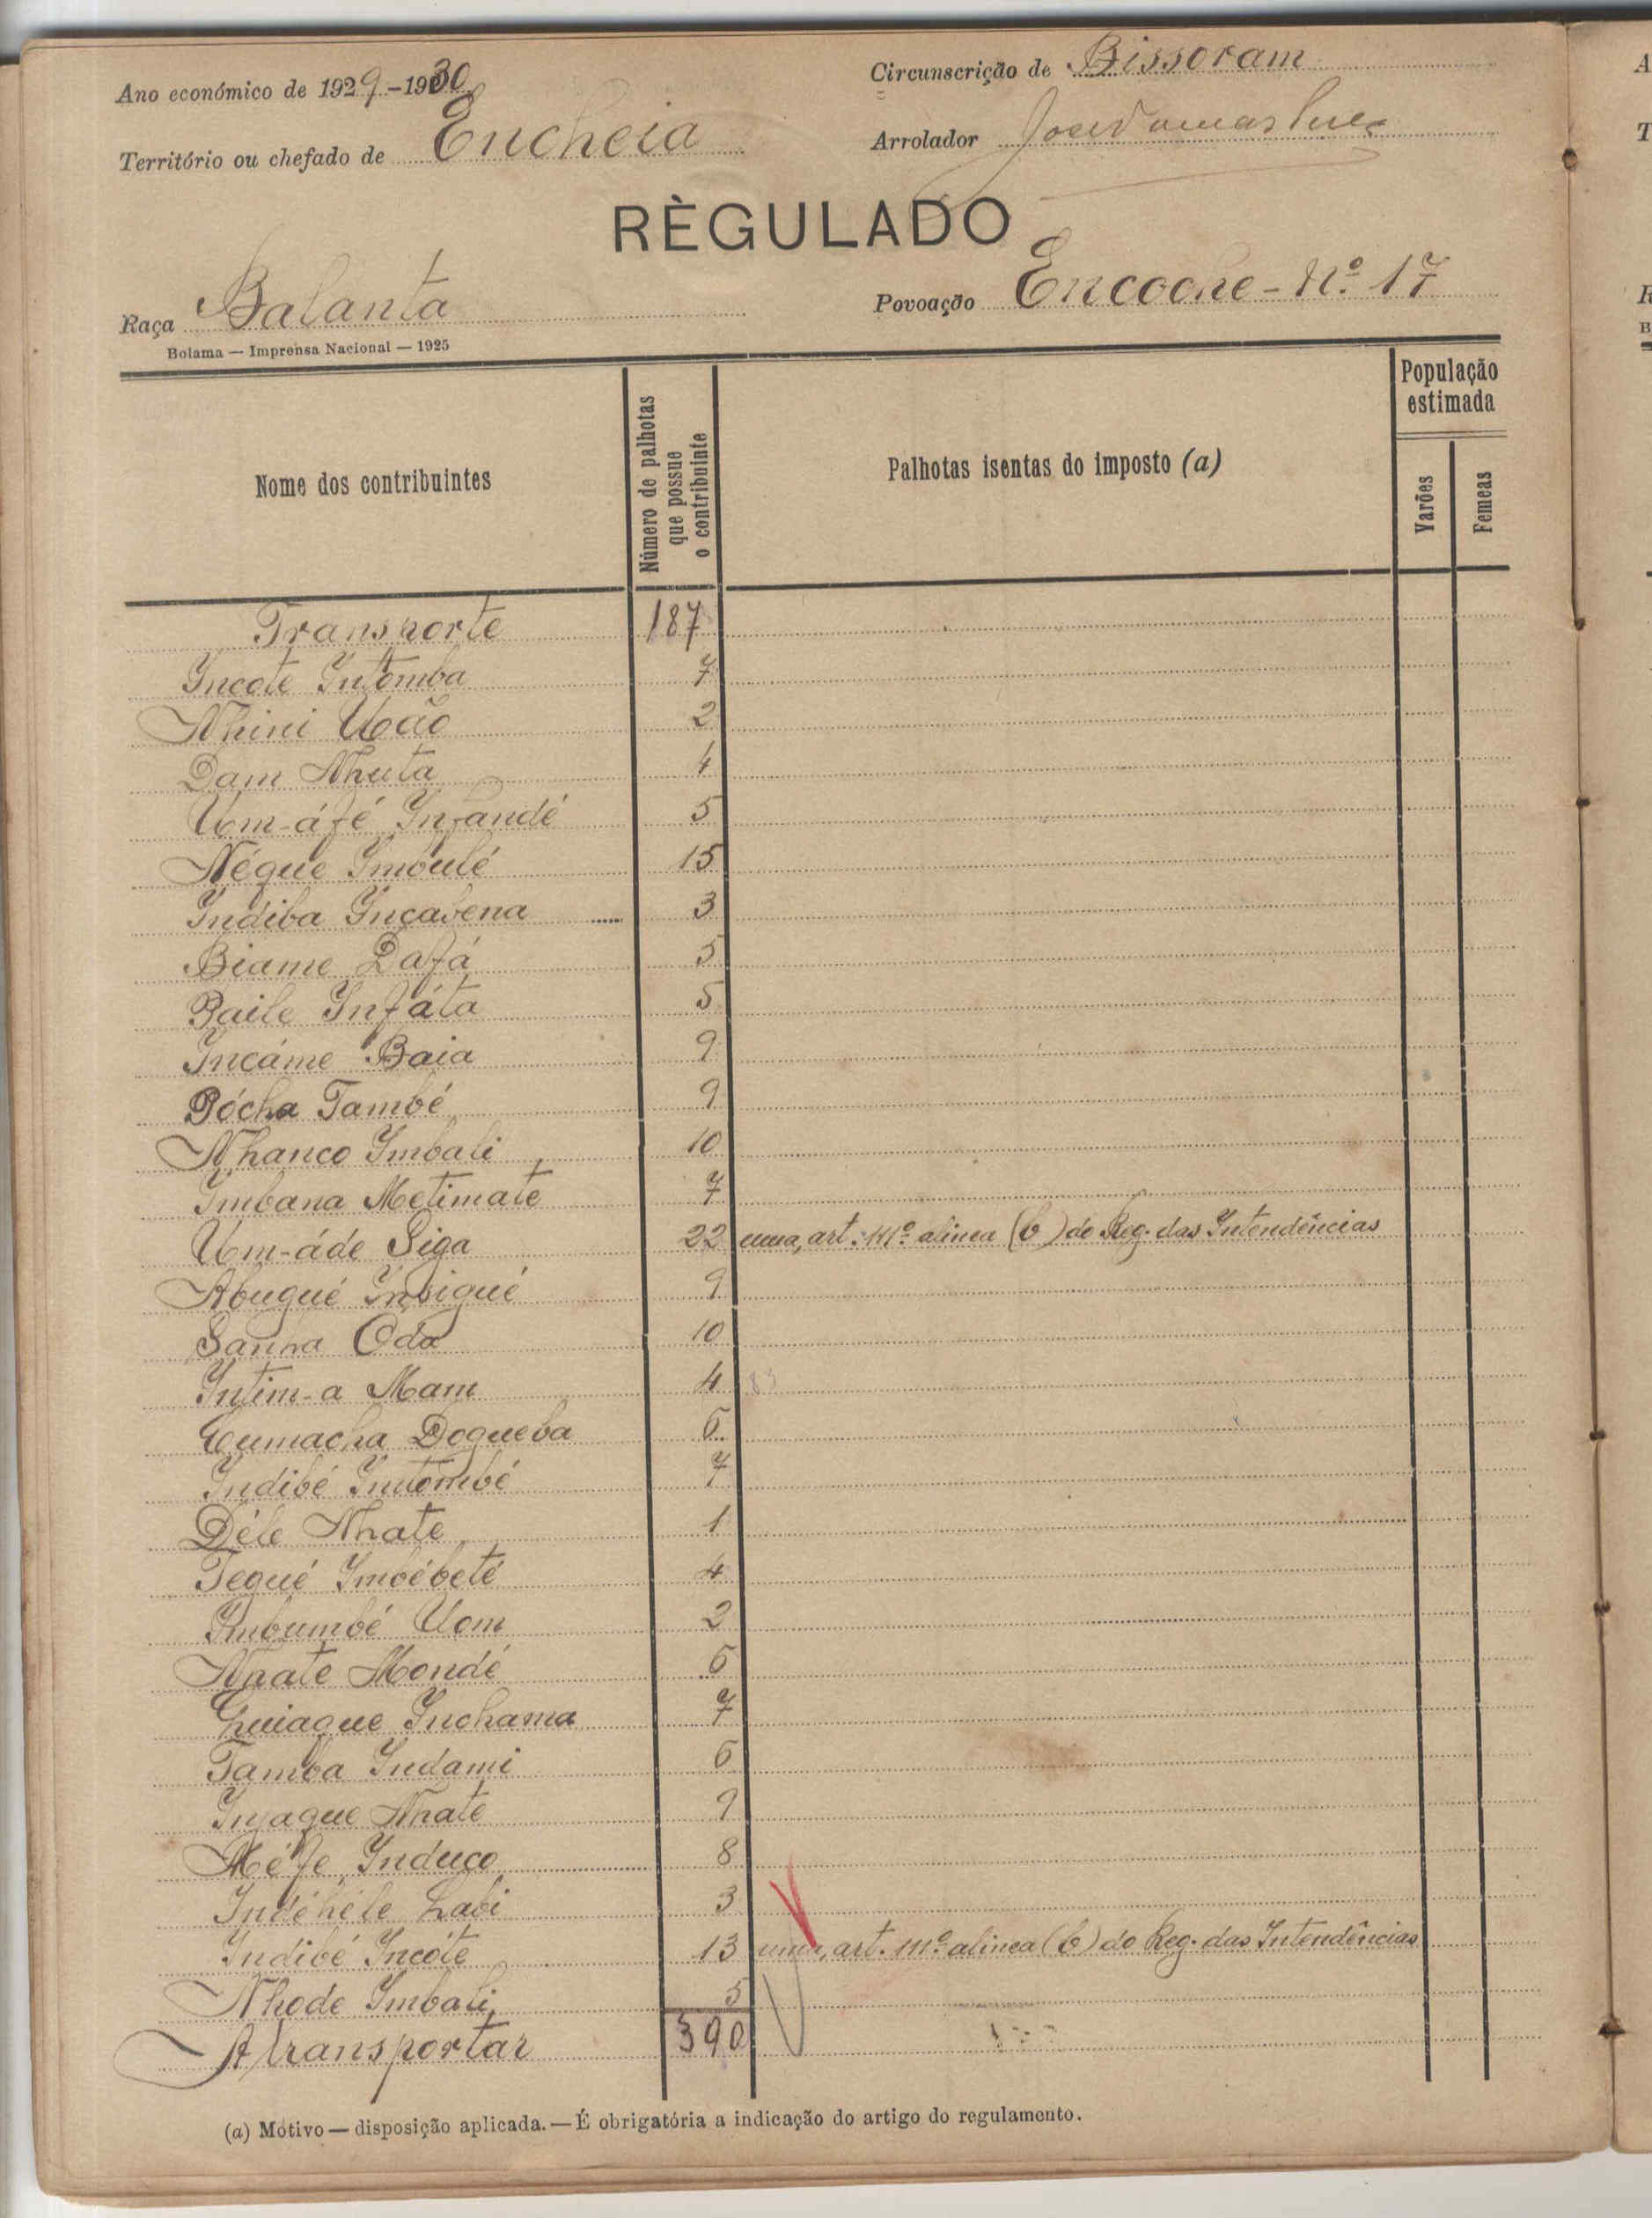 Ano económico de 1929-1930
Circunscrição de Bissoram
Território ou chefado de Encheia
Arrolador
RÈGULADO
Raça Balanta
Povoação Encoche - Nº 17
Bolama — Imprensa Nacional — 1925
Nome dos contribuintes
Número de palhotas que possue o contribuinte
Palhotas isentas do imposto (a)
População estimada
Varões
Femeas
Transporte 187
Incote Intomba 7
Nhini Uoão 2
Dam Nhuta 4
Um-áfé Infandé 5
Négue Imbulé 15
Indiba Inçabena 3
Biame Dafá 5
Baile Infáta 5
Incáme Baia 9
Bócha També 9
Nhanco Imbali 10
Imbana Metimate 7
Um-áde Siga 22 uma, art. 141º alinea (b) do Reg. das Intendências
Abugué Insigué 9
Sanha Oda 10
Intim-a Mam 4
Cumacha Dogueba 6
Indibé Intombé 7
Déle Nhate 1
Tegué Imbébeté 4
Imbumbé Uom 2
Nhate Mondé 6
Quiague Inchama 7
Tamba Indami 6
Injague Nhate 9
Méfe Induço 8
Indéhéle Labi 3
Indibé Incóte 13 uma, art. 141º alinea (b) do Reg. das Intendências
Nhode Imbali 5
A transportar 390
(a) Motivo — disposição aplicada. — É obrigatória a indicação do artigo do regulamento.